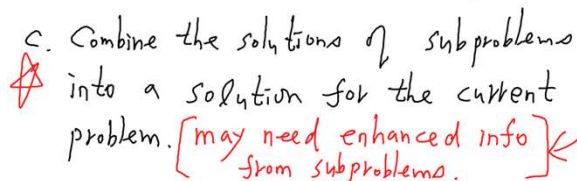 c. Combine the solutions of subproblems
into a solution for the current
problem. [may need enhanced info
from subproblems.]